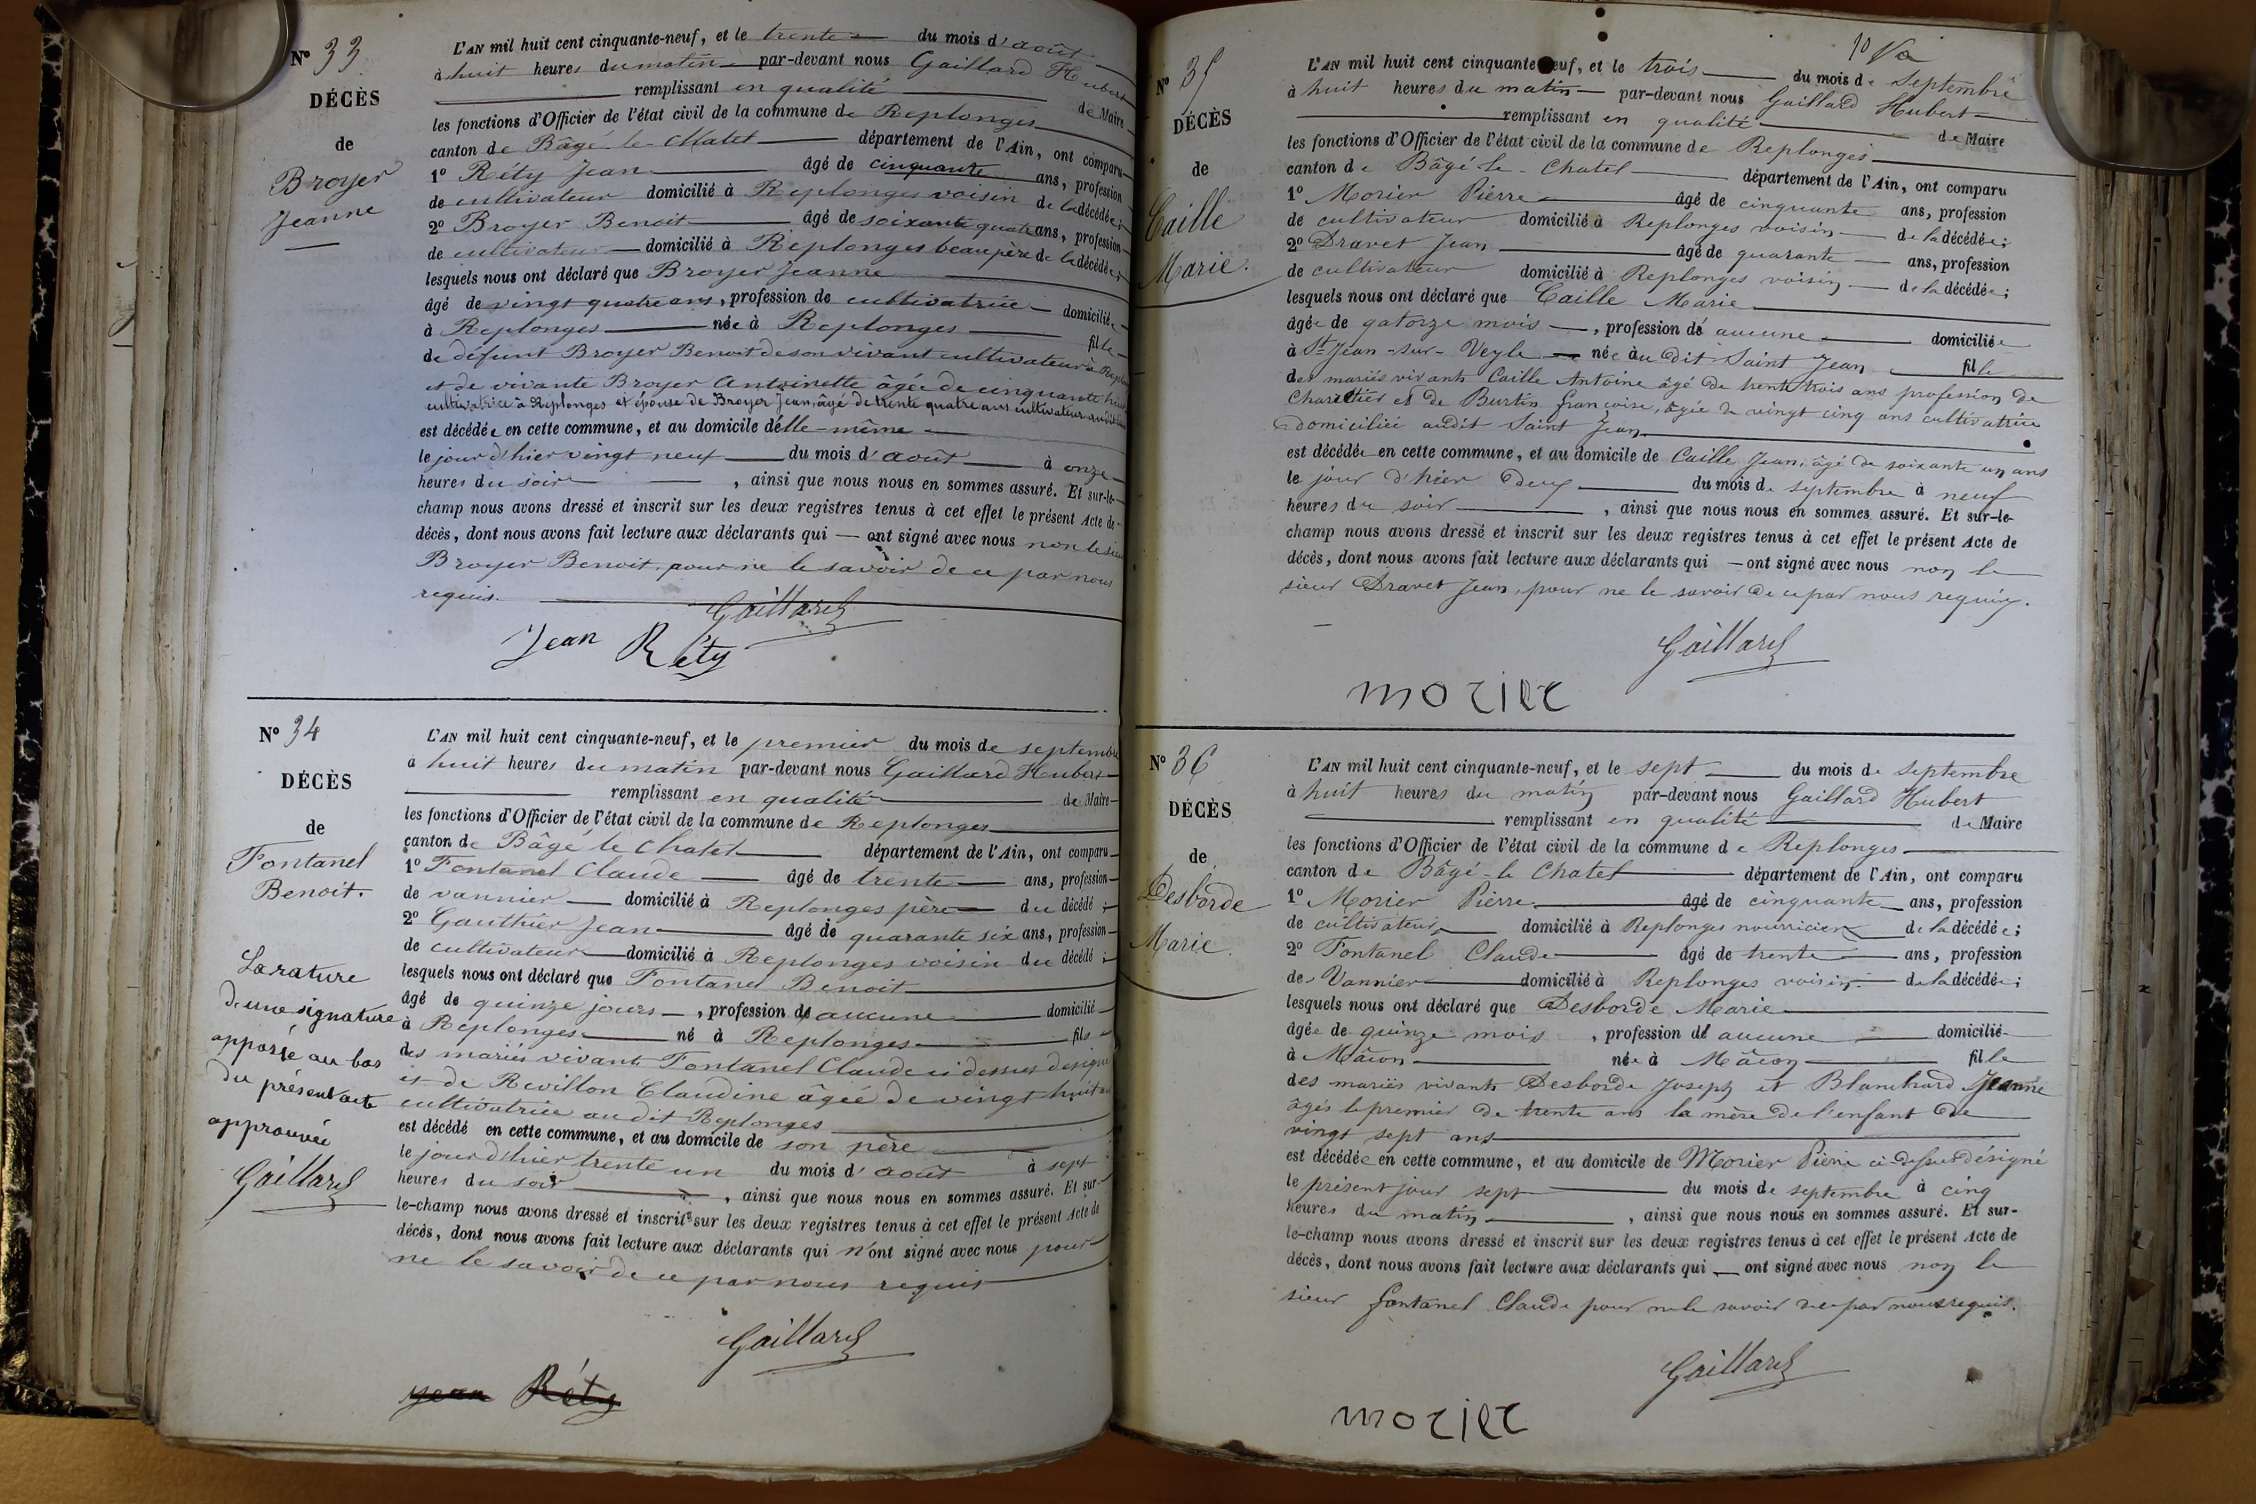 Nº 33
DÉCÈS
de
Broyer
Jeanne
L'AN mil huit cent cinquante-neuf, et le trente du mois d'août
à huit heures du matin par-devant nous Gaillard Hubert
remplissant en qualité de Maire
les fonctions d'Officier de l'état civil de la commune de Replonges
canton de Bâgé le Chatel département de l'Ain, ont comparu
1º Réty Jean âgé de cinquante ans, profession
de cultivateur domicilié à Replonges voisin de la décédée;
2º Broyer Benoit âgé de soixante quatre ans, profession
de cultivateur domicilié à Replonges beaupère de la décédée;
lesquels nous ont déclaré que Broyer Jeanne
âgé de vingt quatre ans, profession de cultivatrice domiciliée
à Replonges née à Replonges fille
de défunt Broyer Benoit de son vivant cultivateur à
et de vivante Broyer Antoinette âgée de cinquante huit
cultivatrice à Replonges et épouse de Broyer Jean, âgé de trente quatre ans cultivateur
est décédée en cette commune, et au domicile d'elle-même
le jour d'hier vingt neuf du mois d'août à onze
heures du soir, ainsi que nous nous en sommes assuré. Et sur-le-
champ nous avons dressé et inscrit sur les deux registres tenus à cet effet le présent Acte de
décès, dont nous avons fait lecture aux déclarants qui — ont signé avec nous non le sieur
Broyer Benoit, pour ne le savoir de ce par nous
requis.
Gaillard
Jean Réty
Nº 34
DÉCÈS
de
Fontanel
Benoit.
La rature
d'une signature
apposée au bas
du présent acte
approuvée
Gaillard
L'AN mil huit cent cinquante-neuf, et le premier du mois de septembre
à huit heures du matin par-devant nous Gaillard Hubert
remplissant en qualité de Maire
les fonctions d'Officier de l'état civil de la commune de Replonges
canton de Bâgé le Chatel département de l'Ain, ont comparu
1º Fontanel Claude âgé de trente ans, profession
de vannier domicilié à Replonges père du décédé;
2º Gauthier Jean âgé de quarante six ans, profession
de cultivateur domicilié à Replonges voisin du décédé;
lesquels nous ont déclaré que Fontanel Benoit
âgé de quinze jours, profession de aucune domicilié
à Replonges né à Replonges fils
des mariés vivants Fontanel Claude ci dessus désigné
et de Revillon Claudine âgée de vingt huit ans
cultivatrice au dit Replonges
est décédé en cette commune, et au domicile de son père
le jour d'hier trente un du mois d'août à sept
heures du soir, ainsi que nous nous en sommes assuré. Et sur-
le-champ nous avons dressé et inscrit sur les deux registres tenus à cet effet le présent Acte de
décès, dont nous avons fait lecture aux déclarants qui n'ont signé avec nous pour
ne le savoir de ce par nous requis
Gaillard
Jean Réty
Nº 35
DÉCÈS
de
Caille
Marie.
L'AN mil huit cent cinquante-neuf, et le trois du mois de septembre
à huit heures du matin par-devant nous Gaillard Hubert
remplissant en qualité de Maire
les fonctions d'Officier de l'état civil de la commune de Replonges
canton de Bâgé-le-Chatel département de l'Ain, ont comparu
1º Morier Pierre âgé de cinquante ans, profession
de cultivateur domicilié à Replonges voisin de la décédée;
2º Dravet Jean âgé de quarante ans, profession
de cultivateur domicilié à Replonges voisin de la décédée;
lesquels nous ont déclaré que Caille Marie
âgée de quatorze mois, profession de aucune domiciliée
à St Jean-sur-Veyle née au dit Saint Jean fille
des mariés vivants Caille Antoine âgé de trente trois ans profession de
Charetier et de Burtin françoise, âgée de vingt cinq ans cultivatrice
domiciliée audit Saint Jean
est décédée en cette commune, et au domicile de Caille Jean, âgé de soixante un ans
le jour d'hier deux du mois de septembre à neuf
heures du soir, ainsi que nous nous en sommes assuré. Et sur-le-
champ nous avons dressé et inscrit sur les deux registres tenus à cet effet le présent Acte de
décès, dont nous avons fait lecture aux déclarants qui — ont signé avec nous non le
sieur Dravet Jean, pour ne le savoir de ce par nous requis.
Gaillard
morier
Nº 36
DÉCÈS
de
Desborde
Marie.
L'AN mil huit cent cinquante-neuf, et le sept du mois de septembre
à huit heures du matin par-devant nous Gaillard Hubert
remplissant en qualité de Maire
les fonctions d'Officier de l'état civil de la commune de Replonges
canton de Bâgé-le Chatel département de l'Ain, ont comparu
1º Morier Pierre âgé de cinquante ans, profession
de cultivateur domicilié à Replonges nourricier de la décédée;
2º Fontanel Claude âgé de trente ans, profession
de Vannier domicilié à Replonges voisin de la décédée;
lesquels nous ont déclaré que Desborde Marie
âgée de quinze mois, profession d'aucune domicilié
à Mâcon née à Mâcon fille
des mariés vivants Desborde Joseph et Blanchard Jeanne
âgés le premier de trente ans la mère de l'enfant de
vingt sept ans
est décédée en cette commune, et au domicile de Morier Pierre ci-dessus désigné
le présent jour sept du mois de septembre à cinq
heures du matin, ainsi que nous nous en sommes assuré. Et sur-
le-champ nous avons dressé et inscrit sur les deux registres tenus à cet effet le présent Acte de
décès, dont nous avons fait lecture aux déclarants qui — ont signé avec nous non le
sieur fontanel Claude pour ne le savoir de ce par nous requis.
Gaillard
morier